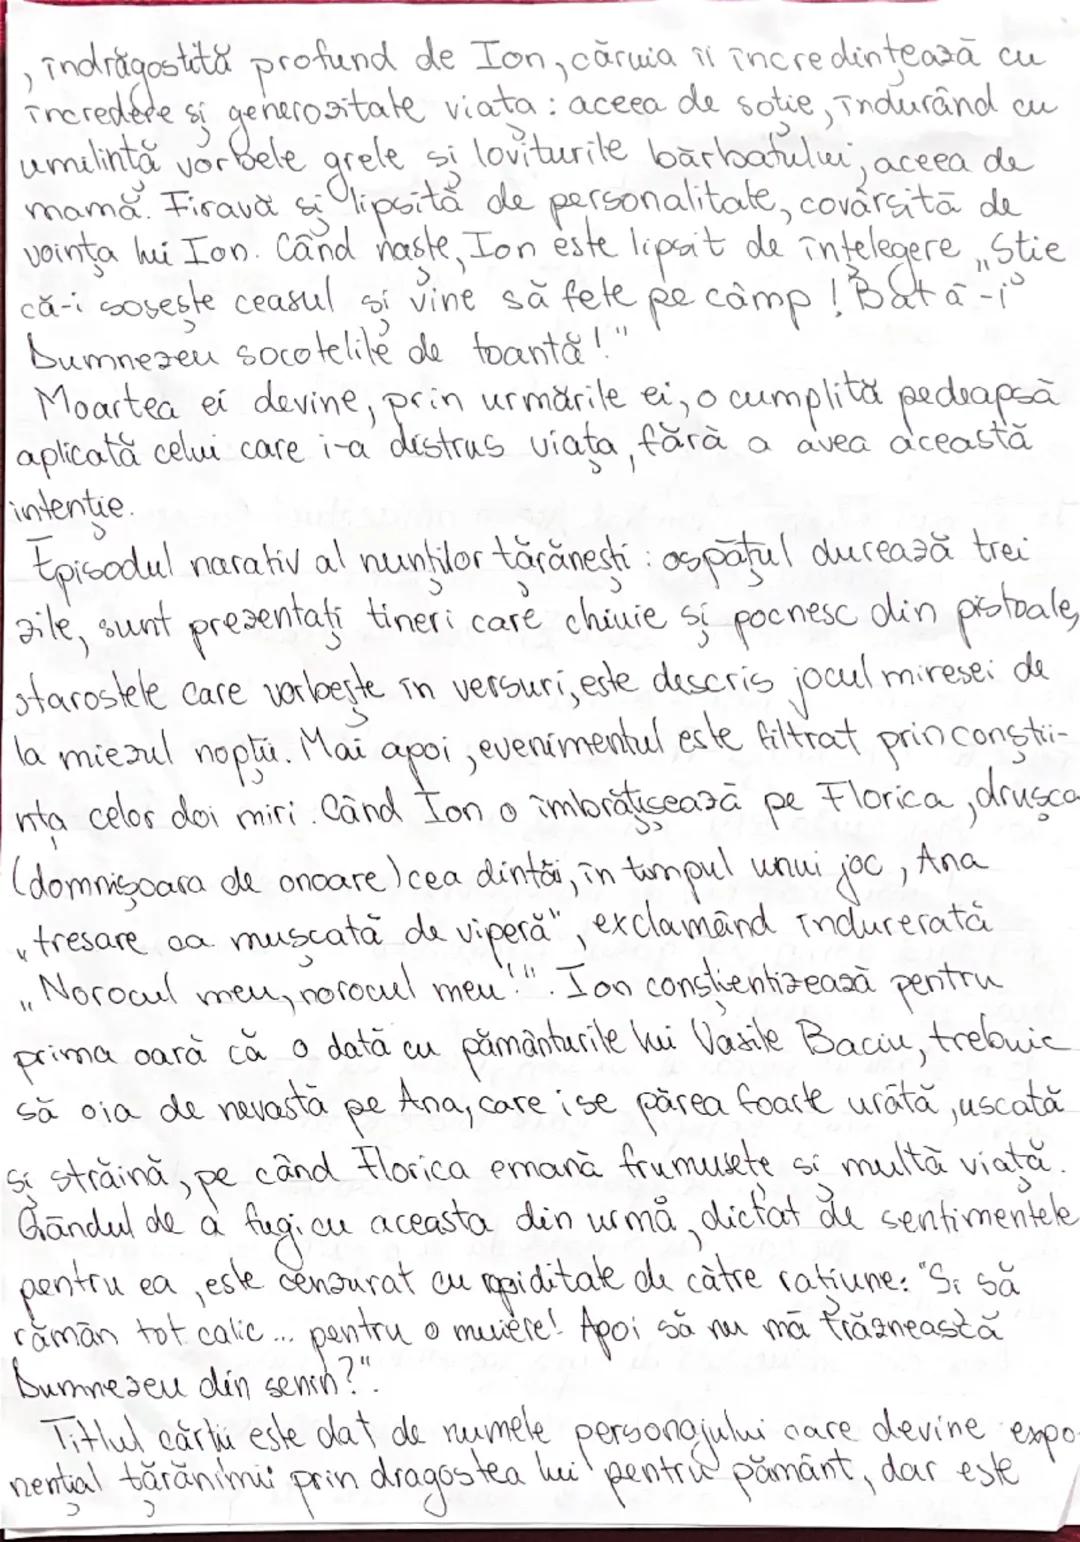 , îndrăgostită profund de Ion, căruia îi încredințează cu
încredere și generozitate viața: aceea de soție, îndurând cu
umilință vorbele grele și loviturile bărbatului, aceea de
mamă. Firavă și lipsită de personalitate, covârșită de
voința lui Ion. Când naște, Ion este lipsit de înțelegere „Știe
că-i sosește ceasul și vine să fete pe câmp! Bată-i
Dumnezeu socotelile de toantă!"
Moartea ei devine, prin urmările ei, o cumplită pedeapsă
aplicată celui care i-a distrus viața, fără a avea această
intenție.
Episodul narativ al nunților țărănești: ospățul durează trei
zile, sunt prezentați tineri care chiuie și pocnesc din pistoale,
starostele care vorbește în versuri, este descris jocul miresei de
la miezul nopții. Mai apoi, evenimentul este filtrat prin conștii-
nța celor doi miri. Când Ion o îmbrățișează pe Florica, drușca
(domnișoara de onoare) cea dintâi, în timpul unui joc, Ana
„tresare ca mușcată de viperă", exclamând îndurerată
„Norocul meu, norocul meu!". Ion conștientizează pentru
prima oară că o dată cu pământurile lui Vasile Baciu, trebuie
să o ia de nevastă pe Ana, care i se părea foarte urâtă, uscată
și străină, pe când Florica emană frumusețe și multă viață.
Gândul de a fugi cu aceasta din urmă, dictat de sentimentele
pentru ea, este cenzurat cu rapiditate de către rațiune: "Și să
rămân tot calic... pentru o muiere! Apoi să nu mă trăznească
Dumnezeu din senin?".
Titlul cărții este dat de numele personajului care devine expo-
nențial țărănimii prin dragostea lui pentru pământ, dar este